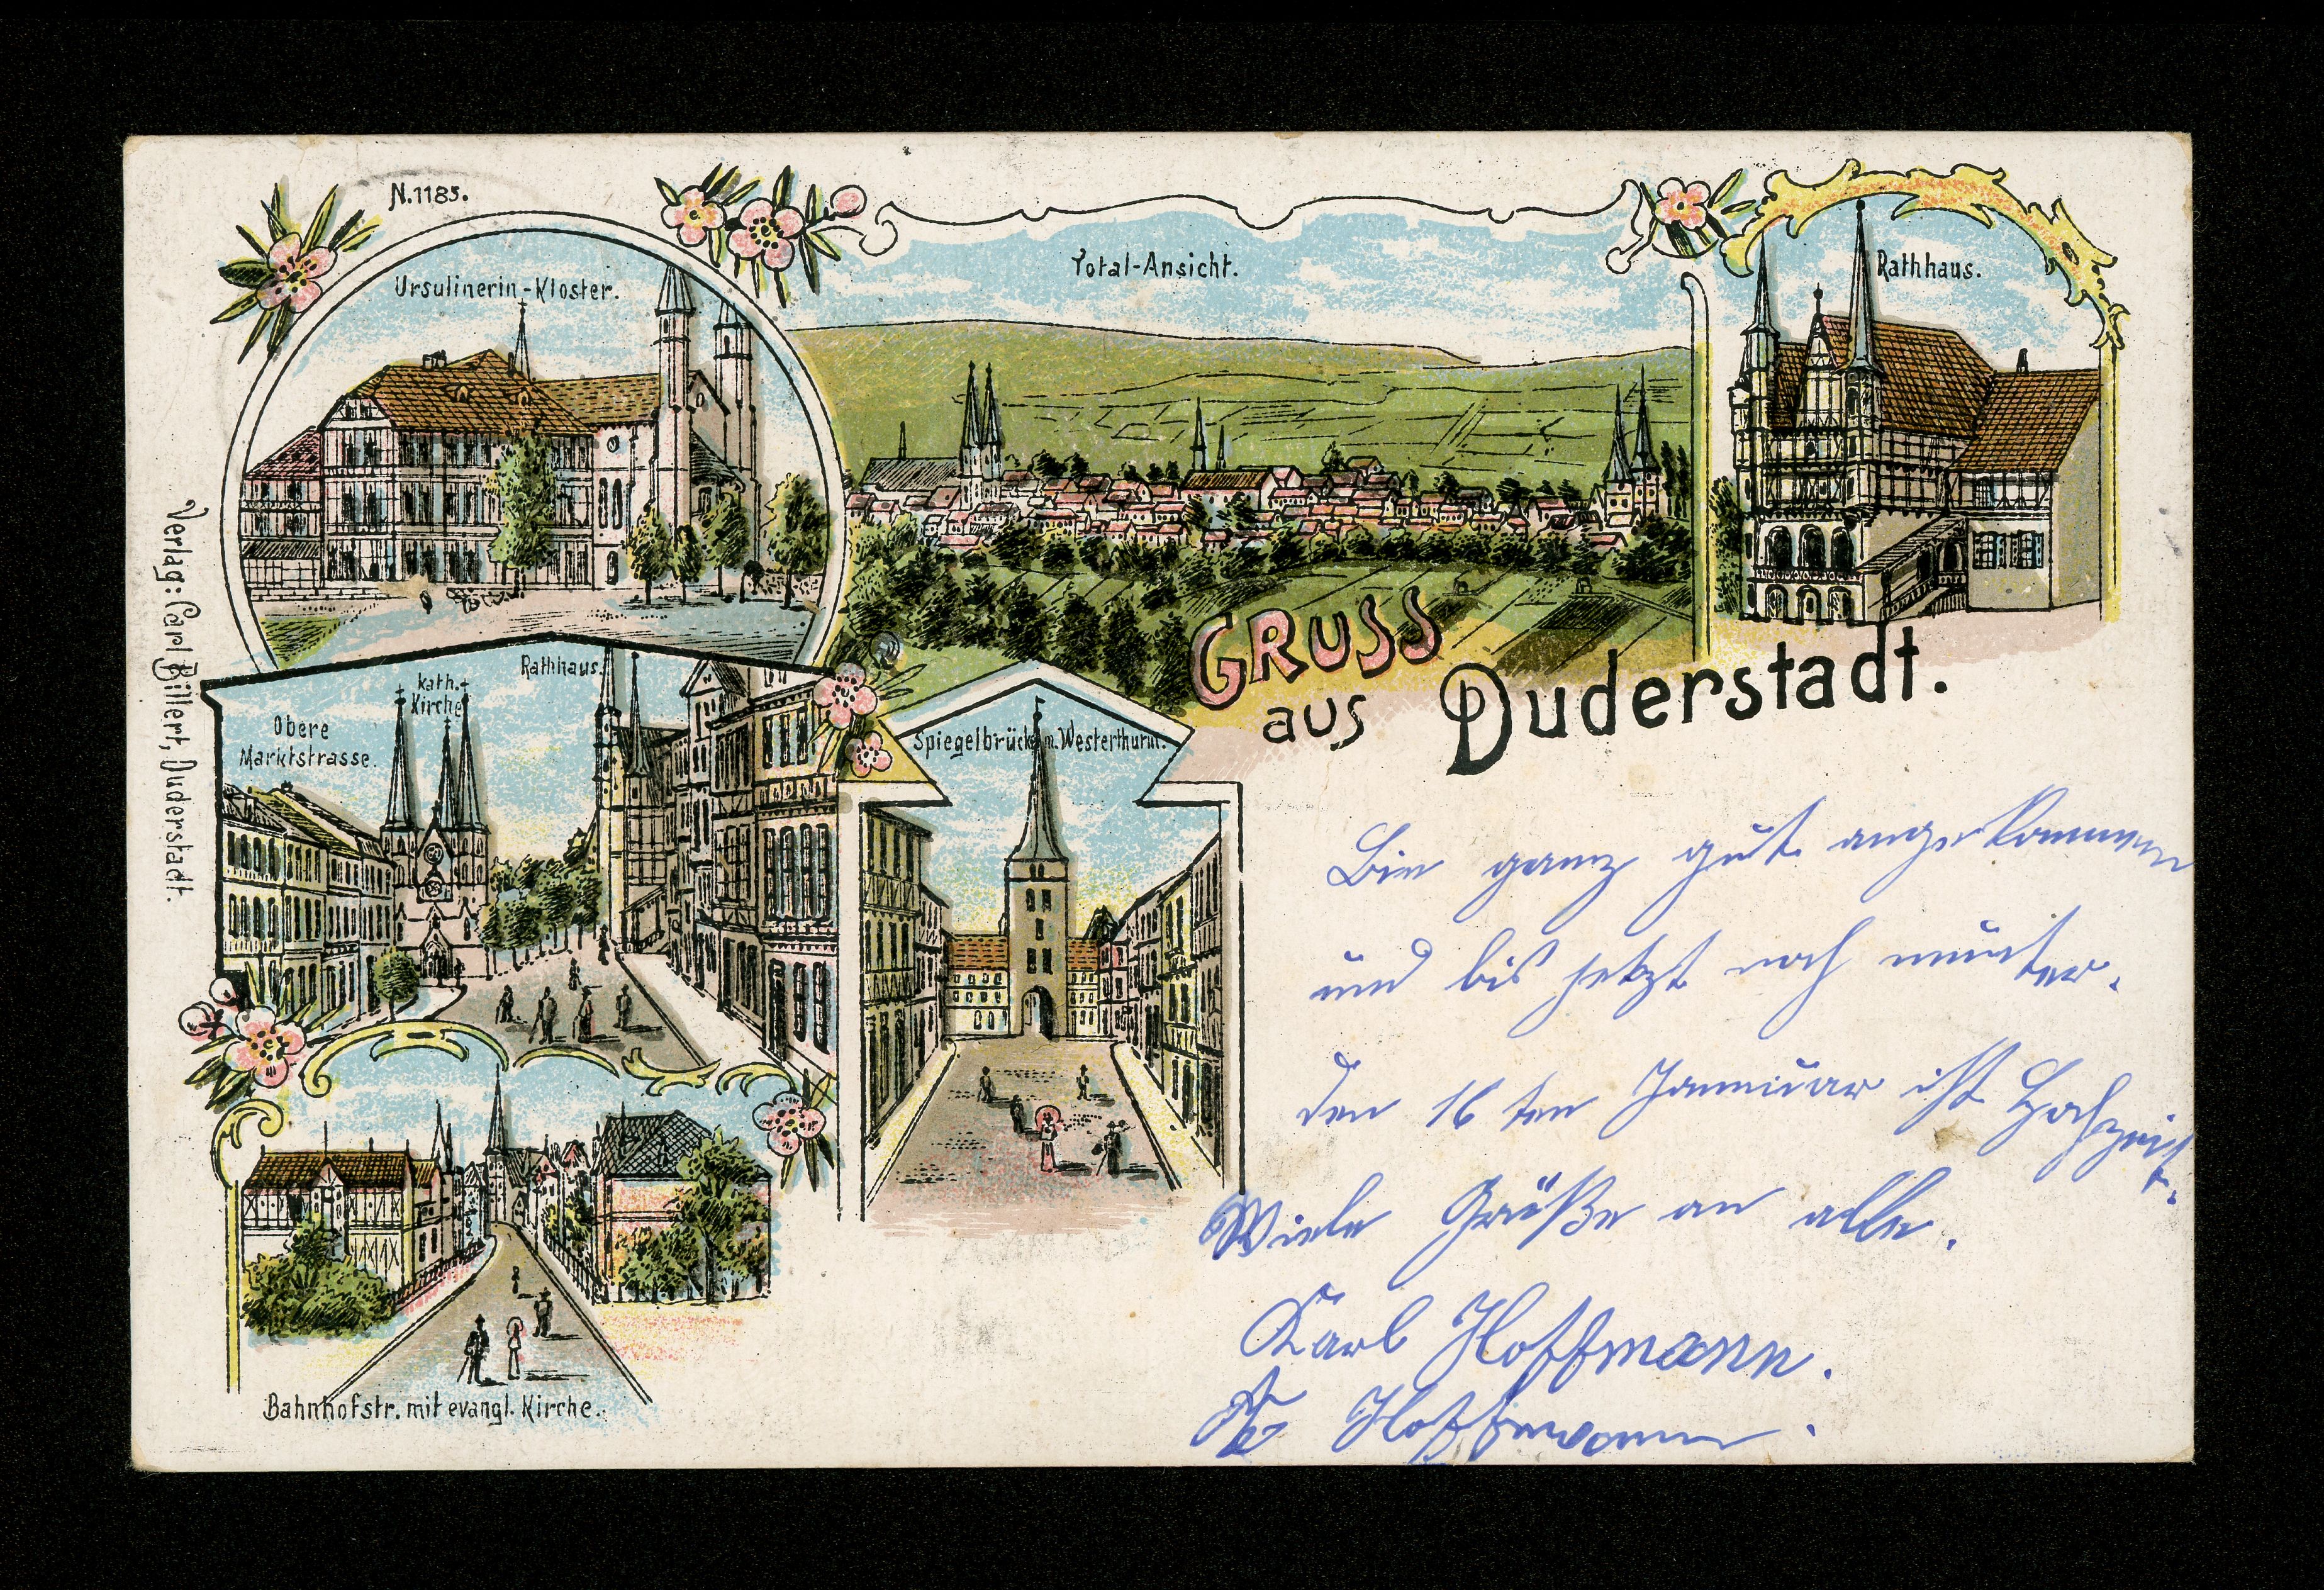 N. 1185.
Ursulinerin-Kloster.
Total-Ansicht.
Rathhaus.
GRUSS
aus Duderstadt.
Obere
Marktstrasse.
Kath.
Kirche
Rathhaus.
Spiegelbrücke m. Westerthurm.
Bahnhofstr. mit evangl. Kirche.
Verlag: Carl Billert, Duderstadt.
Bin ganz gut angekommen
und bis jetzt noch munter.
den 16ten Januar ist Hochzeit.
Viele Grüße an alle.
Karl Hoffmann.
Hoffmann.